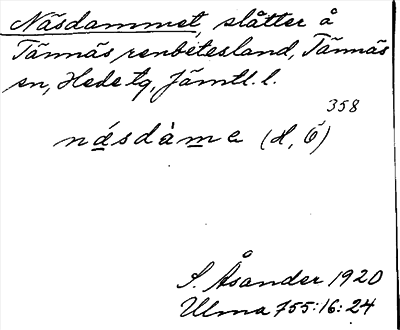 Näsdammet, slåtter å
Tännäs renbetesland, Tännäs
sn, Hede tg, Jämtl. l.
358
násdàme (H, Ö)
S. Åsander 1920
Ulma 755:16:24